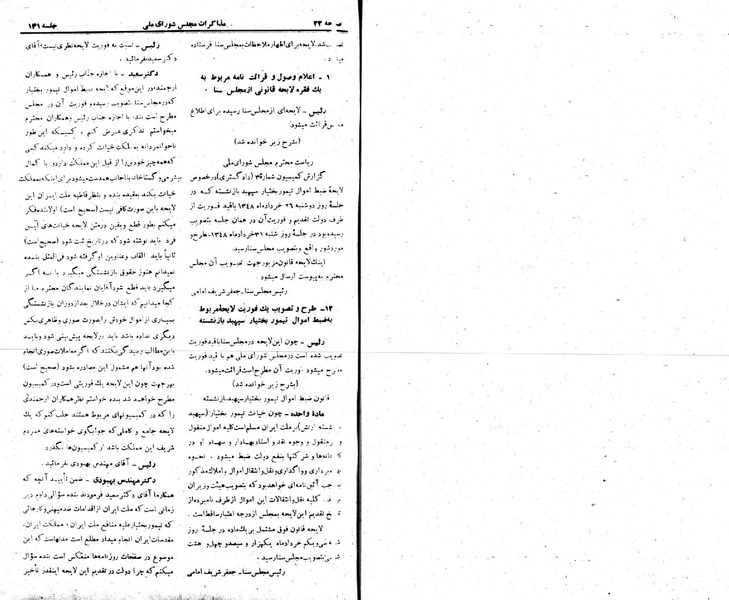 صفحه ۲۲
مذاکرات مجلس شورای ملی
جلسه ۱۴۱
شد، لایحه برای اظهار ملاحظات بمجلس سنا فرستاده
میشود.
۱۰ - اعلام وصول و قرائت نامه مربوط به
یك فقره لایحه قانونی از مجلس سنا .
رئیس - لایحه‌ای از مجلس سنا رسیده برای اطلاع
مجلس قرائت میشود.
(بشرح زیر خوانده شد)
ریاست محترم مجلس شورای ملی
گزارش کمیسیون شماره ۳ (دادگستری) درخصوص
لایحهٔ ضبط اموال تیمور بختیار سپهبد بازنشسته که در
جلسهٔ روز دوشنبه ۲۶ خردادماه ۱۳۴۸ باقید فوریت از
طرف دولت تقدیم و فوریت آن در همان جلسه بتصویب
رسیده بود در جلسهٔ روز شنبه ۳۱ خردادماه ۱۳۴۸ مطرح و
مورد شور واقع و بتصویب مجلس سنا رسید.
اینك لایحه قانون مزبور جهت تصویب آن مجلس
محترم به پیوست ارسال میشود.
رئیس مجلس سنا - جعفر شریف امامی
۱۳- طرح و تصویب یك فوریت لایحهٔ مربوط
به ضبط اموال تیمور بختیار سپهبد بازنشسته
رئیس - چون این لایحه در مجلس سنا باقید فوریت
تصویب شده است در مجلس شورای ملی هم با قید فوریت
مطرح میشود فوریت آن مطرح است قرائت میشود.
(بشرح زیر خوانده شد)
قانون ضبط اموال تیمور بختیار سپهبد بازنشسته
ماده واحده - چون خیانت تیمور بختیار (سپهبد
بازنشسته ارتش) بر ملت ایران مسلم است کلیه اموال منقول
و غیرمنقول و وجوه نقد و اسناد بهادار و سهام او در
کارخانه‌ها و شرکتها بنفع دولت ضبط میشود . نحوه
بهره‌برداری و واگذاری و نقل و انتقال اموال و املاك مذکور
بموجب آئین‌نامه‌ای خواهد بود که بتصویب هیئت وزیران
میرسد. کلیه نقل و انتقالات این اموال از طرف نامبرده از
تاریخ تقدیم این لایحه بمجلس از درجه اعتبار ساقط است .
لایحه قانون فوق مشتمل بر یك ماده در جلسهٔ روز
شنبه سی و یکم خرداد ماه یکهزار و سیصد و چهل و هشت
شمسی بتصویب مجلس سنا رسید.
رئیس مجلس سنا - جعفر شریف امامی
رئیس - نسبت به فوریت لایحه نظری نیست؟ آقای
دکتر سعید بفرمائید.
دکتر سعید - با اجازه جناب رئیس و همکاران
ارجمند، در این موقع که لایحه ضبط اموال تیمور بختیار
که در مجلس سنا تصویب رسیده و فوریت آن در مجلس
مطرح است بنده با اجازه جناب رئیس و همکاران محترم
میخواستم تذکری عرض کنم ، کسیکه این طور
ناجوانمردانه به ملت خیانت کرده و دارد میکند کسی
که همه چیز خودش را از قبل این مملکت دارد و با کمال
بیشرمی و گستاخانه با اجانب همدست میشود برای اینکه به مملکت
خیانت بکند بعقیده بنده و بنظر قاطبه ملت ایران این
لایحه باین صورت کافی نیست (صحیح است) اولا بنده فکر
میکنم بطور قطع و یقین در متن لایحه خیانت‌های این
فرد باید نوشته شود که در تاریخ ثبت شود (صحیح است)
ثانیاً باید القاب و عناوین او گرفته شود فی‌المثل بنده
نمیدانم هنوز حقوق بازنشستگی میگیرد یا نه اگر
میگیرد باید قطع شود آقایان نمایندگان محترم ما از
کجا میدانیم که ایشان در خلال بعد از دوران بازنشستگی
بسیاری از اموال خودش را بصورت صوری و ظاهری بکس
دیگری نداده باشد باید در لایحه پیش‌بینی شود و بیایند
باین مطالب رسیدگی بکنند که اگر معاملات صوری انجام
شده بود آنها هم مشمول این مصادره بشود (صحیح است)
بهر جهت چون این لایحه یك فوریتی است و در کمیسیون
مطرح خواهد شد بنده خواستم نظر همکاران ارجمندی
را که در کمیسیونهای مربوط هستند جلب کنم که یك
لایحه جامع و کاملی که جوابگوی خواسته‌های مردم
شریف این مملکت باشد از کمیسیون‌ها بگذرد.
رئیس - آقای مهندس بهبودی بفرمائید.
دکتر مهندس بهبودی - ضمن تأیید آنچه که
همکارم آقای دکتر سعید فرمودند بنده سؤالی دارم دیر
زمانی است که ملت ایران از اقدامات ضد میهنی و کارهائی
که تیمور بختیار علیه منافع ملت ایران، مملکت ایران،
مقدسات ایران انجام میداد مطلع است مدتهاست که این
موضوع در صفحات روزنامه‌ها منعکس است بنده سؤال
میکنم که چرا دولت در تقدیم این لایحه اینقدر تأخیر